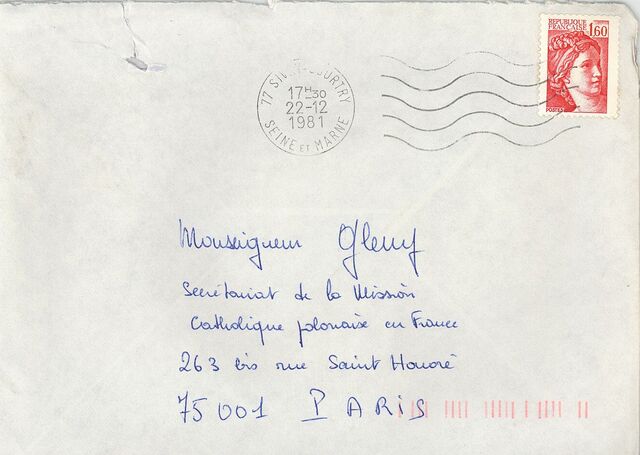 REPUBLIQUE
FRANCAISE
1,60
POSTES
77 SIVRY-COURTRY
17H30
22-12
1981
SEINE ET MARNE
Monseigneur Glemp
Secrétariat de la Mission
Catholique polonaise en France
263 bis rue Saint Honoré
75001 PARIS